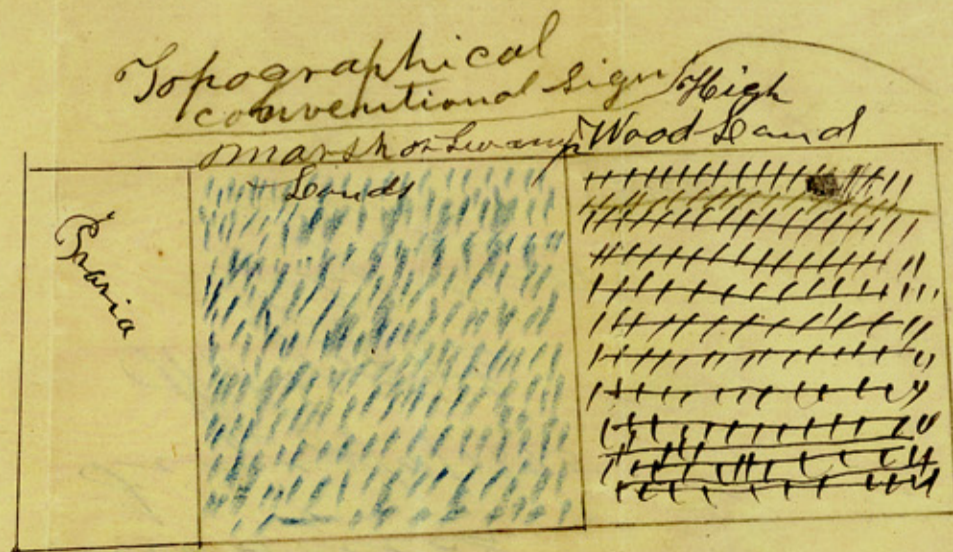 Topographical
conventional Signs
Marsh or Swamp
Lands
High
Wood Land
Praria